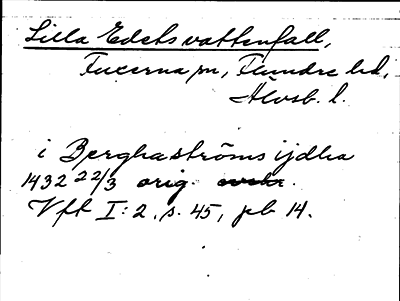 Lilla Edets vattenfall,
Fuxerna sn, Flundre hd,
Älvsb. l.
i Berghaströms ijdha
1432 22/3 orig.
Vft I:2, s. 45, pb 14.